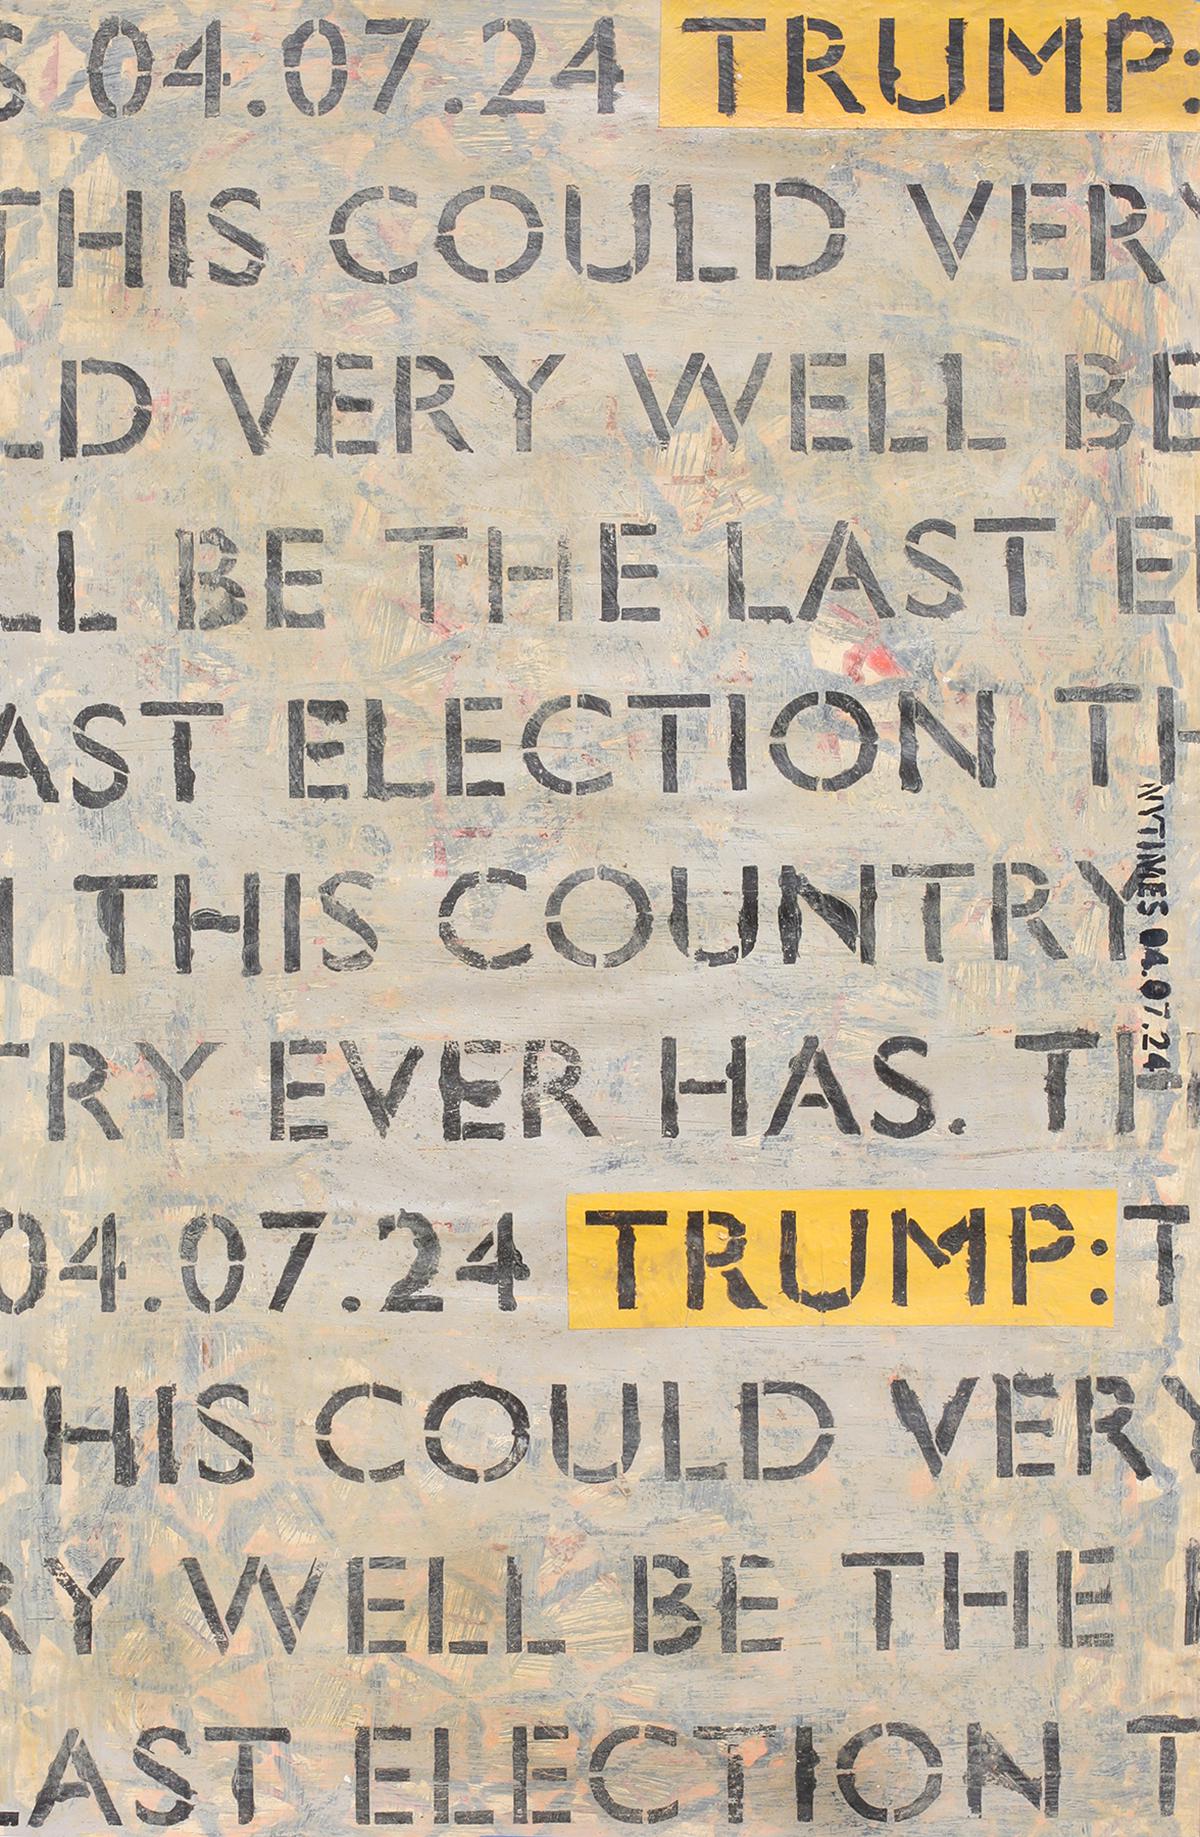 S 04.07.24 TRUMP:
THIS COULD VERY
LD VERY WELL BE
LL BE THE LAST E
AST ELECTION TH
THIS COUNTRY
TRY EVER HAS. TH
04.07.24 TRUMP: T
THIS COULD VERY
RY WELL BE THE
LAST ELECTION T
NYTIMES 04.07.24